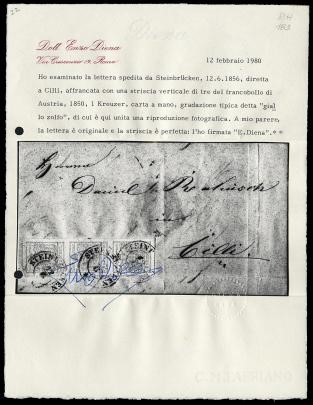 Diena
Dott. Enzo Diena
Via Crescenzio 19, Roma
12 febbraio 1980
Ho examinato la lettera spedita da Steinbrücken, 12.6.1856, diretta
a Cilli, affrancata con una striscia verticale di tre del francobollo di
Austria, 1850, 1 Kreuzer, carta a mano, gradazione tipica detta "gial
lo zolfo", di cui è qui unita una riproduzione fotografica. A mio parere,
la lettera è originale e la striscia è perfetta: l'ho firmata "E.Diena".
Cilli.
STEINB
C.M.FABRIANO